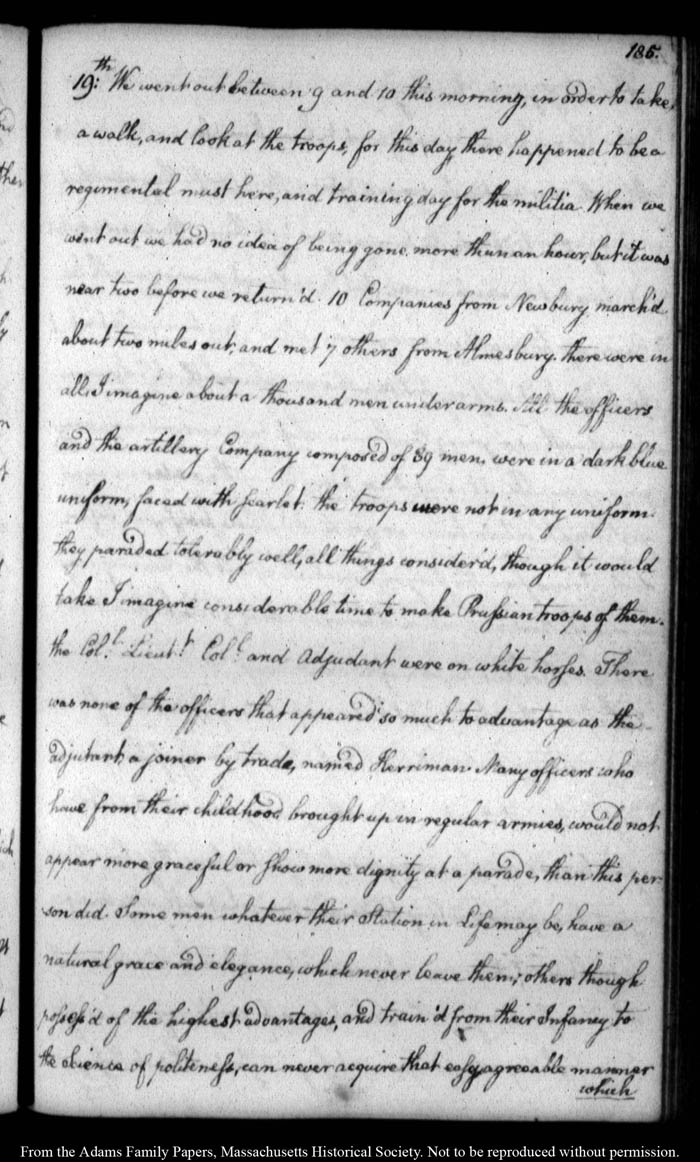 185.
19:th We went out between 9 and 10 this morning, in order to take,
a walk, and look at the troops, for this day there happened to be a
regimental must here, and training day for the militia. When we
went out we had no idea of being gone more than an hour, but it was
near two before we return'd. 10 Companies from Newbury march'd
about two miles out, and met 7 others from Almesbury. there were in
all, I imagine about a thousand men under arms. All the officers
and the artillery Company composed of 39 men, were in a dark blue
uniform, faced with scarlet. the troops were not in any uniform.
they paraded tolerably well, all things consider'd, though it would
take I imagine considerable time to make Prussian troops of them.
the Col.l Lieut.t Col.l and Adjudant were on white horses. There
was none of the officers that appeared so much to advantage as the
adjutant a joiner by trade, named Herriman. Many officers who
have from their childhood brought up in regular armies, would not
appear more graceful or show more dignity at a parade, than this per
son did. Some men whatever their Station in Life may be, have a
natural grace and elegance, which never leave them; others though
possess'd of the highest advantages, and train'd from their Infancy to
the Science of politeness, can never acquire that easy agreeable manner
which
From the Adams Family Papers, Massachusetts Historical Society. Not to be reproduced without permission.